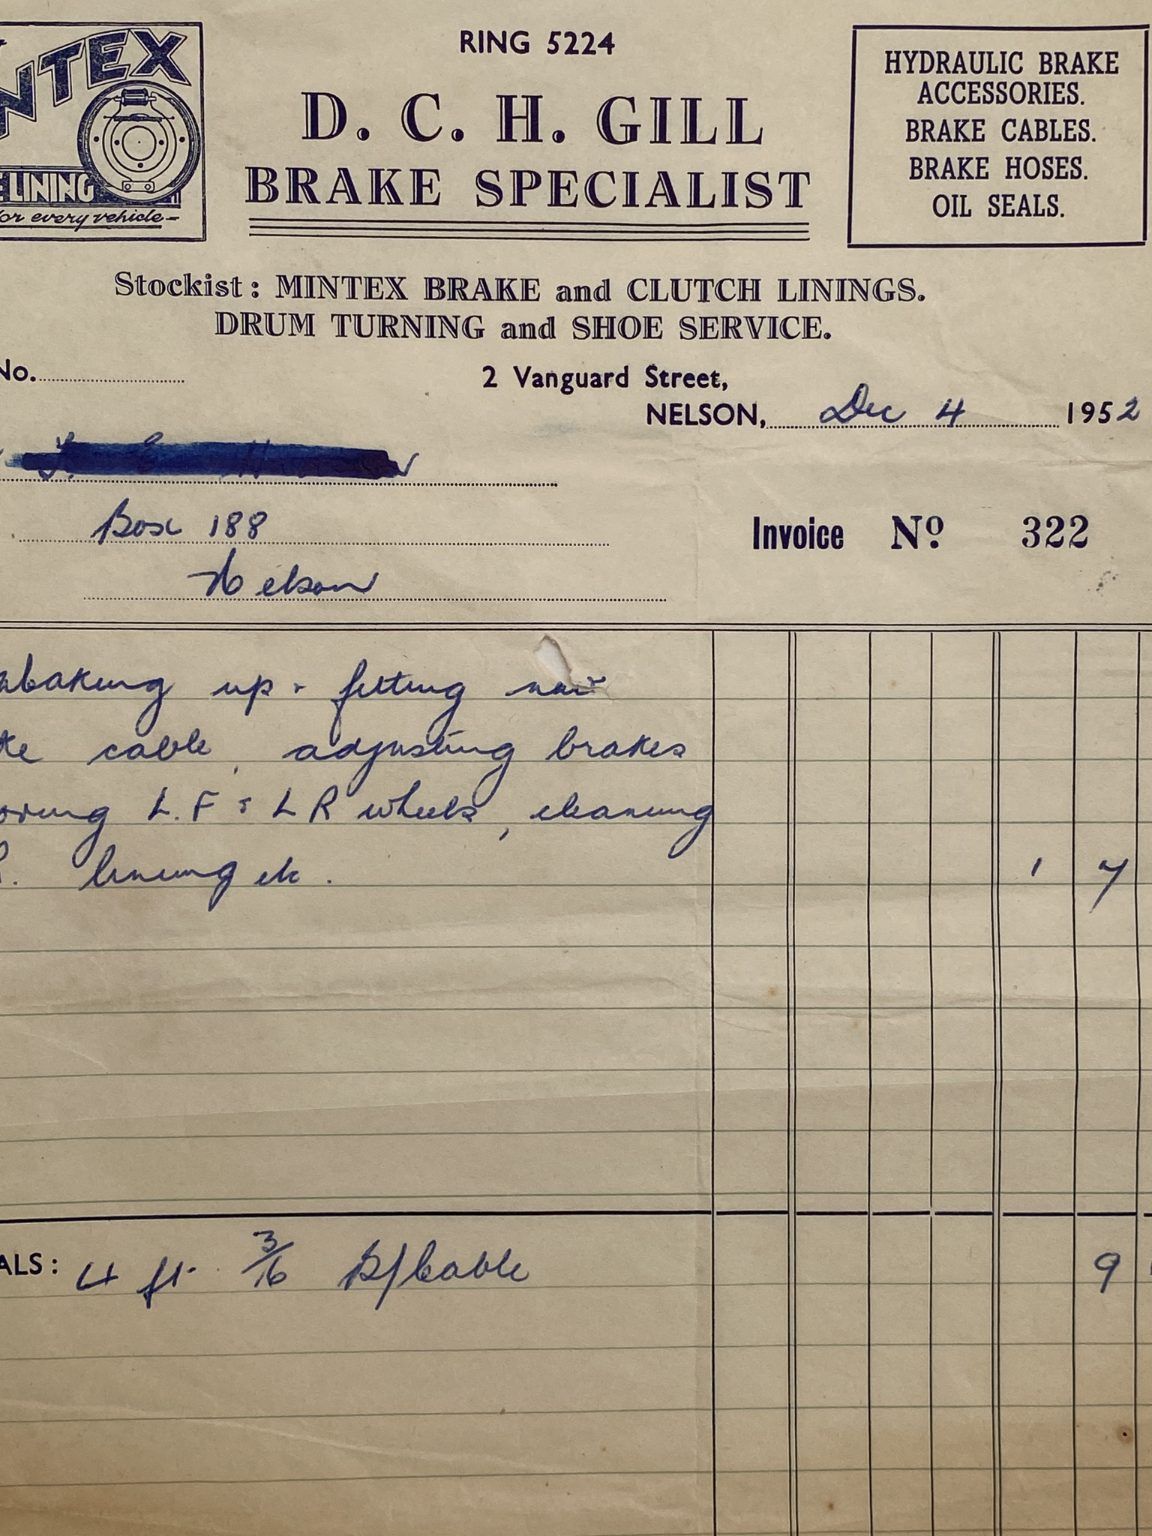 NTEX
LINING
for every vehicle
RING 5224
D. C. H. GILL
BRAKE SPECIALIST
HYDRAULIC BRAKE
ACCESSORIES.
BRAKE CABLES.
BRAKE HOSES.
OIL SEALS.
Stockist: MINTEX BRAKE and CLUTCH LININGS.
DRUM TURNING and SHOE SERVICE.
No.
2 Vanguard Street,
NELSON, Dec 4 1952
Box 188
Invoice Nº 322
Nelson
up & fitting new
cable, adjusting brakes
L.F & L R wheels, cleaning
lining etc. 1 7
ALS: 4 ft. 3/16 B/Cable 9